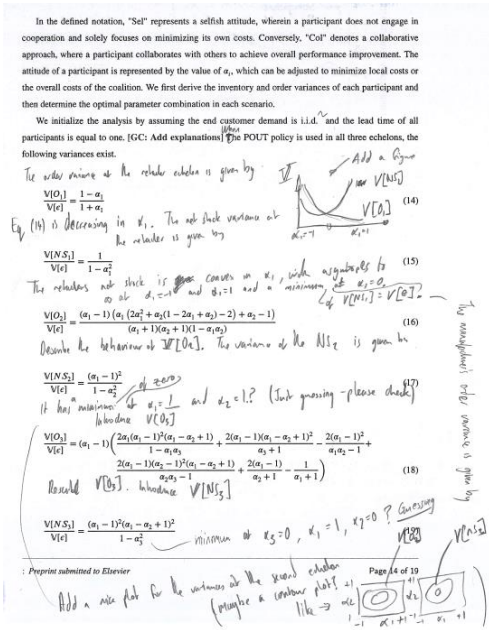 In the defined notation, "Sel" represents a selfish attitude, wherein a participant does not engage in
cooperation and solely focuses on minimizing its own costs. Conversely, "Col" denotes a collaborative
approach, where a participant collaborates with others to achieve overall performance improvement. The
attitude of a participant is represented by the value of αᵢ, which can be adjusted to minimize local costs or
the overall costs of the coalition. We first derive the inventory and order variances of each participant and
then determine the optimal parameter combination in each scenario.
We initialize the analysis by assuming the end customer demand is i.i.d. and the lead time of all
When
participants is equal to one. [GC: Add explanations] The POUT policy is used in all three echelons, the
following variances exist.
The order variance at the retailer echelon is given by
Add a figure
V
V[NS₁]
V[O₁]
α₁=-1 α₁=1
V[O₁]/V[ε] = (1 − α₁)/(1 + α₁) (14)
Eq (14) is decreasing in α₁. The net stock variance at
the retailer is given by
V[NS₁]/V[ε] = 1/(1 − α₁²) (15)
The retailers net stock is convex in α₁, with asymptotes to
∞ at α₁=-1 and α₁=1 and a minimum at α₁=0.
of V[NS₁] = V[ε].
V[O₂]/V[ε] = (α₁ − 1)(α₁(2α₂² + α₂(1 − 2α₁ + α₂) − 2) + α₂ − 1)/((α₁ + 1)(α₂ + 1)(1 − α₁α₂)) (16)
Describe the behaviour of V[O₂]. The variance of the NS₂ is given by
V[NS₂]/V[ε] = (α₁ − 1)²/(1 − α₂²) (17)
of zero
It has a minimum at α₁=1 and α₂=1.? (Just guessing - please check)
Introduce V[O₃]
V[O₃]/V[ε] = (α₁ − 1)(2α₁(α₁ − 1)²(α₁ − α₂ + 1)/(1 − α₁α₃) + 2(α₁ − 1)(α₁ − α₂ + 1)²/(α₃ + 1) − 2(α₁ − 1)²/(α₁α₂ − 1) +
2(α₁ − 1)(α₂ − 1)²(α₁ − α₂ + 1)/(α₂α₃ − 1) + 2(α₁ − 1)/(α₂ + 1) − 1/(α₁ + 1)) (18)
V[O₃]. Introduce V[NS₃]
V[NS₃]/V[ε] = (α₁ − 1)²(α₁ − α₂ + 1)²/(1 − α₃²)
minimum at α₃=0, α₁=1, α₂=0? Guessing
The manufacturer's order variance is given by
: Preprint submitted to Elsevier
Page 14 of 19
Add a nice plot for the variances at the second echelon
(maybe a contour plot?
like →
V[O₂]
V[NS₂]
+1
α₂
-1
α₁ +1
-1
+1
α₂
-1
α₁ +1